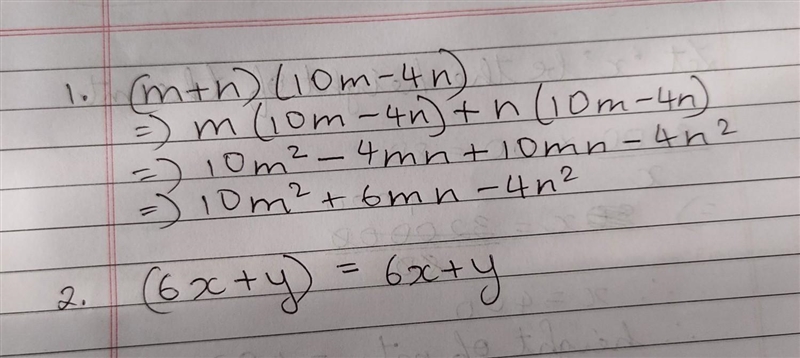 1. (m+n) (10m-4n)
=> m (10m-4n) + n (10m-4n)
=> 10m² - 4mn + 10mn - 4n²
=> 10m² + 6mn - 4n²
2. (6x+y) = 6x+y